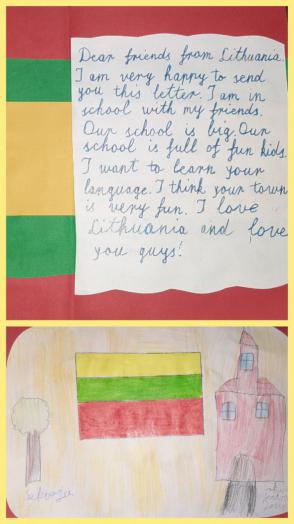 Dear friends from Lithuania.
I am very happy to send
you this letter. I am in
school with my friends.
Our school is big. Our
school is full of fun kids.
I want to learn your
language. I think your town
is very fun. I love
Lithuania and love
you guys!